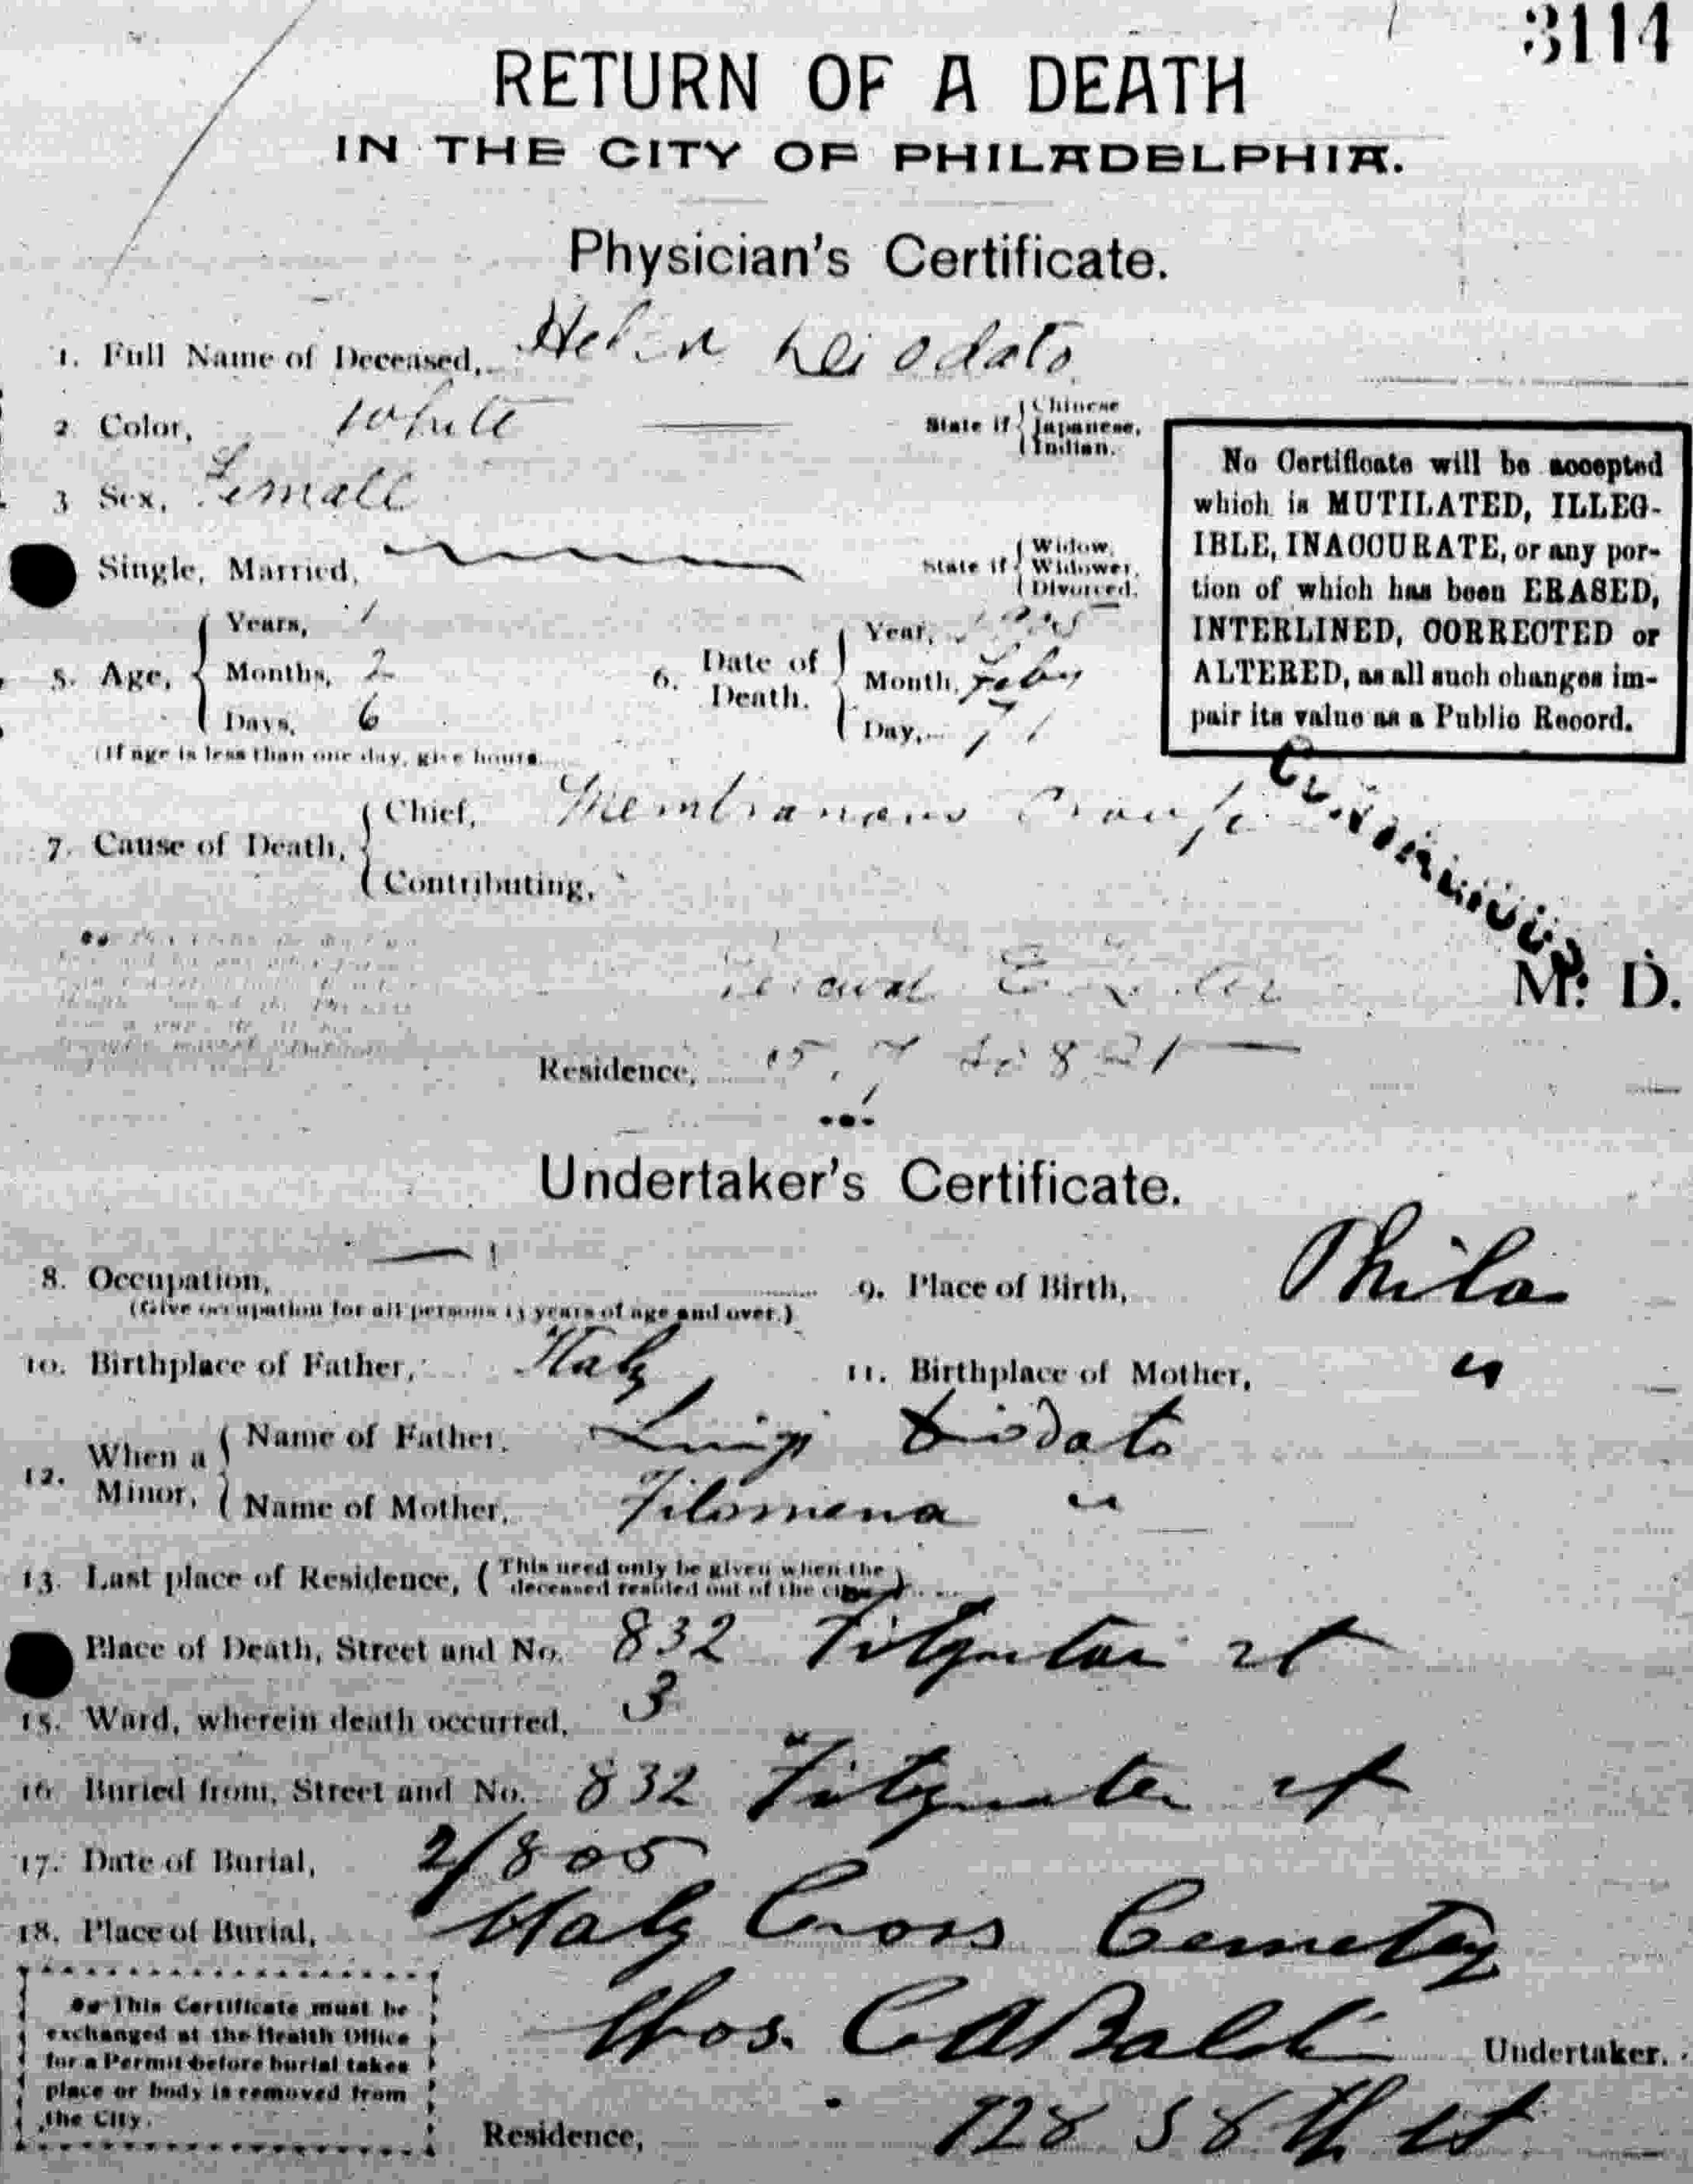 3114
RETURN OF A DEATH
IN THE CITY OF PHILADELPHIA.
Physician's Certificate.
1. Full Name of Deceased, Helen Deiodato
2. Color, White State if { Chinese Japanese, Indian.
3 Sex, Female
Single, Married, State if { Widow, Widower, Divorced.
No Certificate will be accepted
which is MUTILATED, ILLEG-
IBLE, INACCURATE, or any por-
tion of which has been ERASED,
INTERLINED, CORRECTED or
ALTERED, as all such changes im-
pair its value as a Public Record.
5. Age, { Years, 1
Months, 2
Days, 6
(If age is less than one day, give hours.
6. Date of Death. { Year, 1905
Month, Feby
Day,
7. Cause of Death, { Chief, Membranous Croup
Contributing,
M. D.
Residence,
Undertaker's Certificate.
8. Occupation, —
(Give occupation for all persons 15 years of age and over.)
9. Place of Birth, Phila
10. Birthplace of Father, Italy
11. Birthplace of Mother, "
12. When a Minor, { Name of Father, Luigi Diodato
Name of Mother, Filomena "
13. Last place of Residence, ( This need only be given when the deceased resided out of the city.)
Place of Death, Street and No. 832 Fitzwater st
15. Ward, wherein death occurred, 3
16 Buried from, Street and No. 832 Fitzwater st
17. Date of Burial, 2/8 05
18. Place of Burial, Holy Cross Cemetery
This Certificate must be
exchanged at the Health Office
for a Permit before burial takes
place or body is removed from
the City.
Chos. C A Baldi Undertaker.
Residence, 928 S 8th st